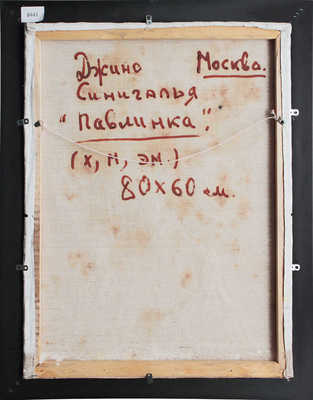 8441
Джино Москва.
Синигалья
"Павлинка".
(х, м, эм.)
80х60 см.